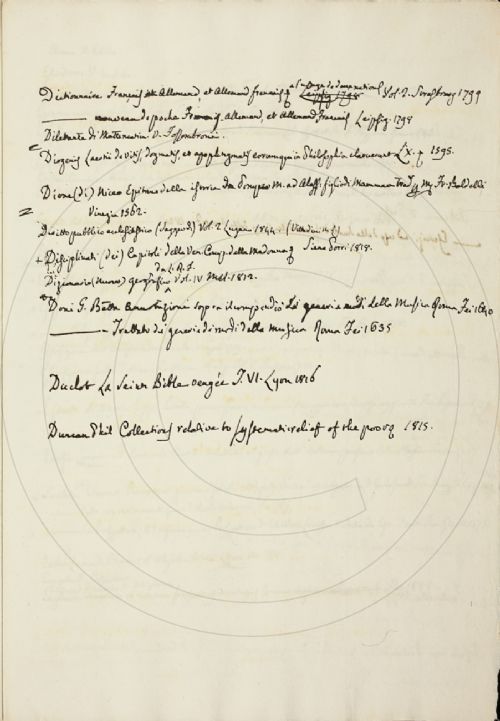 Dictionnaire François Allemand, et Allemand françois à l'usage des deux nations Vol. 2. Strasbourg 1799
——— nouveau de poche François, Allemand, et Allemand François Leipzig 1798
Dilettante di Matematica V. Fossombroni.
Diogenis Laertii de vitis, dogmatis, et apophtegmatis eorum qui in Philosophia claruerunt 1595.
Dione (di) Niceo Epitome della istoria da Pompeo M. ad Aless. figlio di Mammea Fr. Baldelli
Vinegia 1562.
Diritto pubblico ecclesiastico (Saggio di) Vol. 2 Lugano
+ Disciplinati (dei) Capitoli della Ven. Comp. della Madonna Siena Porri 1818.
Dizionario (Nuovo) geografico Vol. IV Mil. 1812.
Doni G. Batta Annotazioni sopra il compendio de generi e modi della Musica Roma Fei 1640
——— Trattato de generi e di modi della musica Roma Fei 1635
Duclot La Sainte Bible vengée T. VI. Lyon 1816
Duncan Phil Collections relative to systematic relief of the poor 1815.